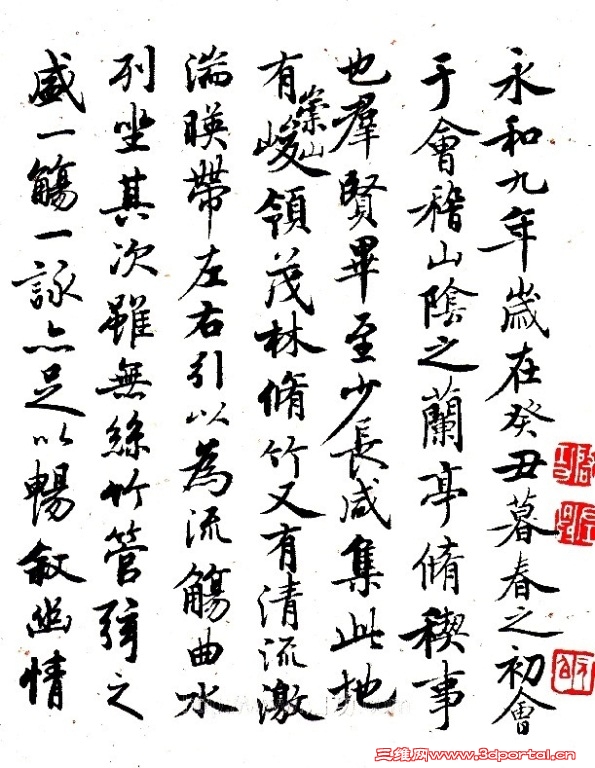 永和九年歲在癸丑暮春之初會
于會稽山陰之蘭亭脩稧事
也羣賢畢至少長咸集此地
有崇山峻領茂林脩竹又有清流激
湍暎帶左右引以為流觴曲水
列坐其次雖無絲竹管弦之
盛一觴一詠亦足以暢敘幽情
三维网www.3dportal.cn